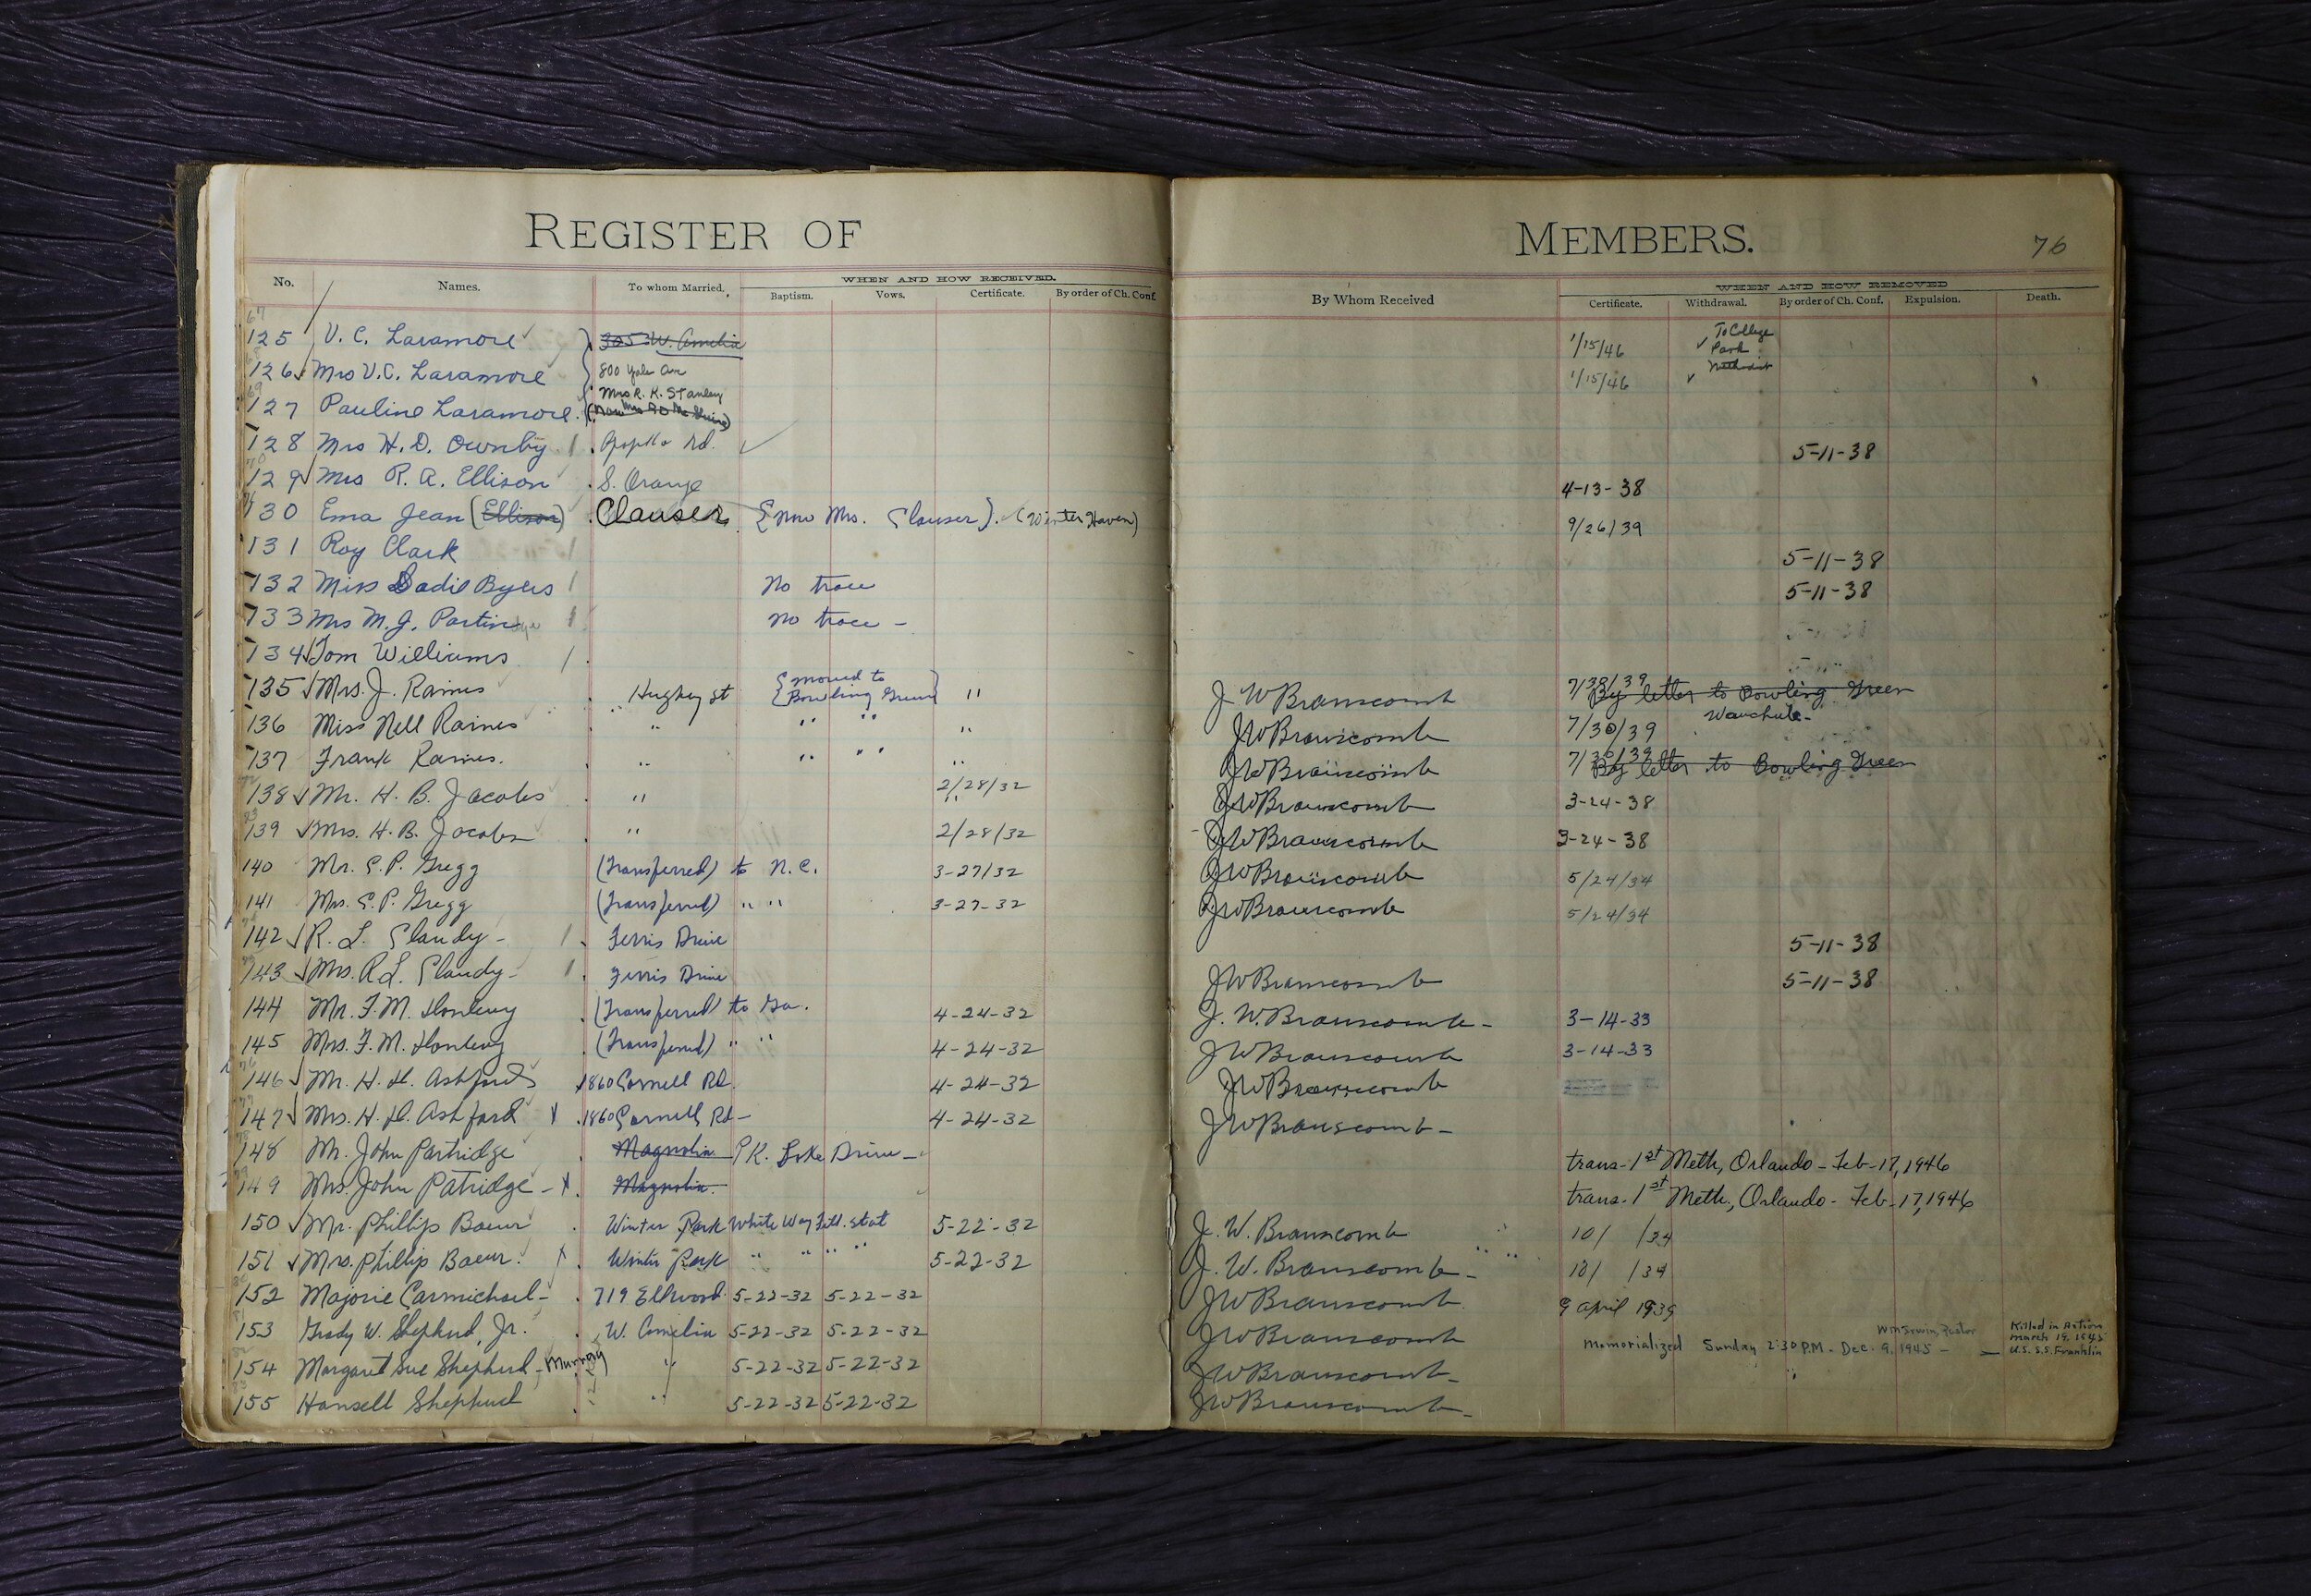 REGISTER OF MEMBERS. 76
No. Names. To whom Married. WHEN AND HOW RECEIVED. By Whom Received WHEN AND HOW REMOVED
Baptism. Vows. Certificate. By order of Ch. Conf. Certificate. Withdrawal. By order of Ch. Conf. Expulsion. Death.
125 V. C. Laramore 305 W. Amelia 1/15/46 To College Park Methodist
126 Mrs V. C. Laramore 800 Yale Ave 1/15/46
127 Pauline Laramore Mrs R. K. Stanley
128 Mrs H. D. Ownby Rd. 5-11-38
129 Mrs R. A. Ellison S. Orange 4-13-38
130 Ema Jean (Ellison) Clauser {now Mrs. Clauser}. (Winter Haven) 9/26/39
131 Roy Clark 5-11-38
132 Miss Sadie Byers No trace 5-11-38
133 Mrs M. J. Partin No trace -
134 Tom Williams
135 Mrs. J. Raines Hughey St {moved to Bowling Green} " J W Branscomb 7/30/39 By letter to Bowling Green
136 Miss Nell Raines " " " " JW Branscomb 7/30/39 Wauchula-
137 Frank Raines. " " " " JW Branscomb 7/30/39 By letter to Bowling Green
138 Mr. H. B. Jacobs " 2/28/32 JW Branscomb 3-24-38
139 Mrs. H. B. Jacobs " 2/28/32 JW Branscomb 3-24-38
140 Mr. E. P. Gregg (Transferred) to N. C. 3-27/32 JW Branscomb 5/24/34
141 Mrs. E. P. Gregg (Transferred) " " 3-27-32 JW Branscomb 5/24/34
142 R. L. Clandy - Ferris Drive 5-11-38
143 Mrs. R L. Clandy - Ferris Drive JW Branscomb 5-11-38
144 Mr. F. M. (Transferred) to Ga. 4-24-32 J. W. Branscomb - 3-14-33
145 Mrs. F. M. (Transferred) " " 4-24-32 JW Branscomb 3-14-33
146 Mr. H. H. Ashford 1860 Cornell Rd. 4-24-32 JW Branscomb
147 Mrs. H. H. Ashford x 1860 Cornell Rd - 4-24-32 JW Branscomb -
148 Mr. John Partridge Magnolia PK. Lake Drive - trans. 1st Meth, Orlando - Feb - 17, 1946
149 Mrs. John Patridge - x Magnolia. trans. 1st Meth., Orlando - Feb - 17, 1946
150 Mr. Phillip Baeur Winter Park White Way Fill. Stat 5-22-32 J. W. Branscomb 10/ /34
151 Mrs. Phillip Baeur. x Winter Park " " " " 5-22-32 J. W. Branscomb - 10/ /34
152 Majorie Carmichael - 719 Ellwood 5-22-32 5-22-32 JW Branscomb 9 April 1939
153 Grady W. Shepherd, Jr. W. Amelia 5-22-32 5-22-32 JW Branscomb Memorialized Sunday 2:30 P.M. - Dec. 9, 1945 - Wm Irwin, Pastor Killed in Action March 19, 1945 U. S. S. Franklin
154 Margaret Sue Shepherd - Murray " 5-22-32 5-22-32 JW Branscomb -
155 Hansell Shepherd " 5-22-32 5-22-32 JW Branscomb -